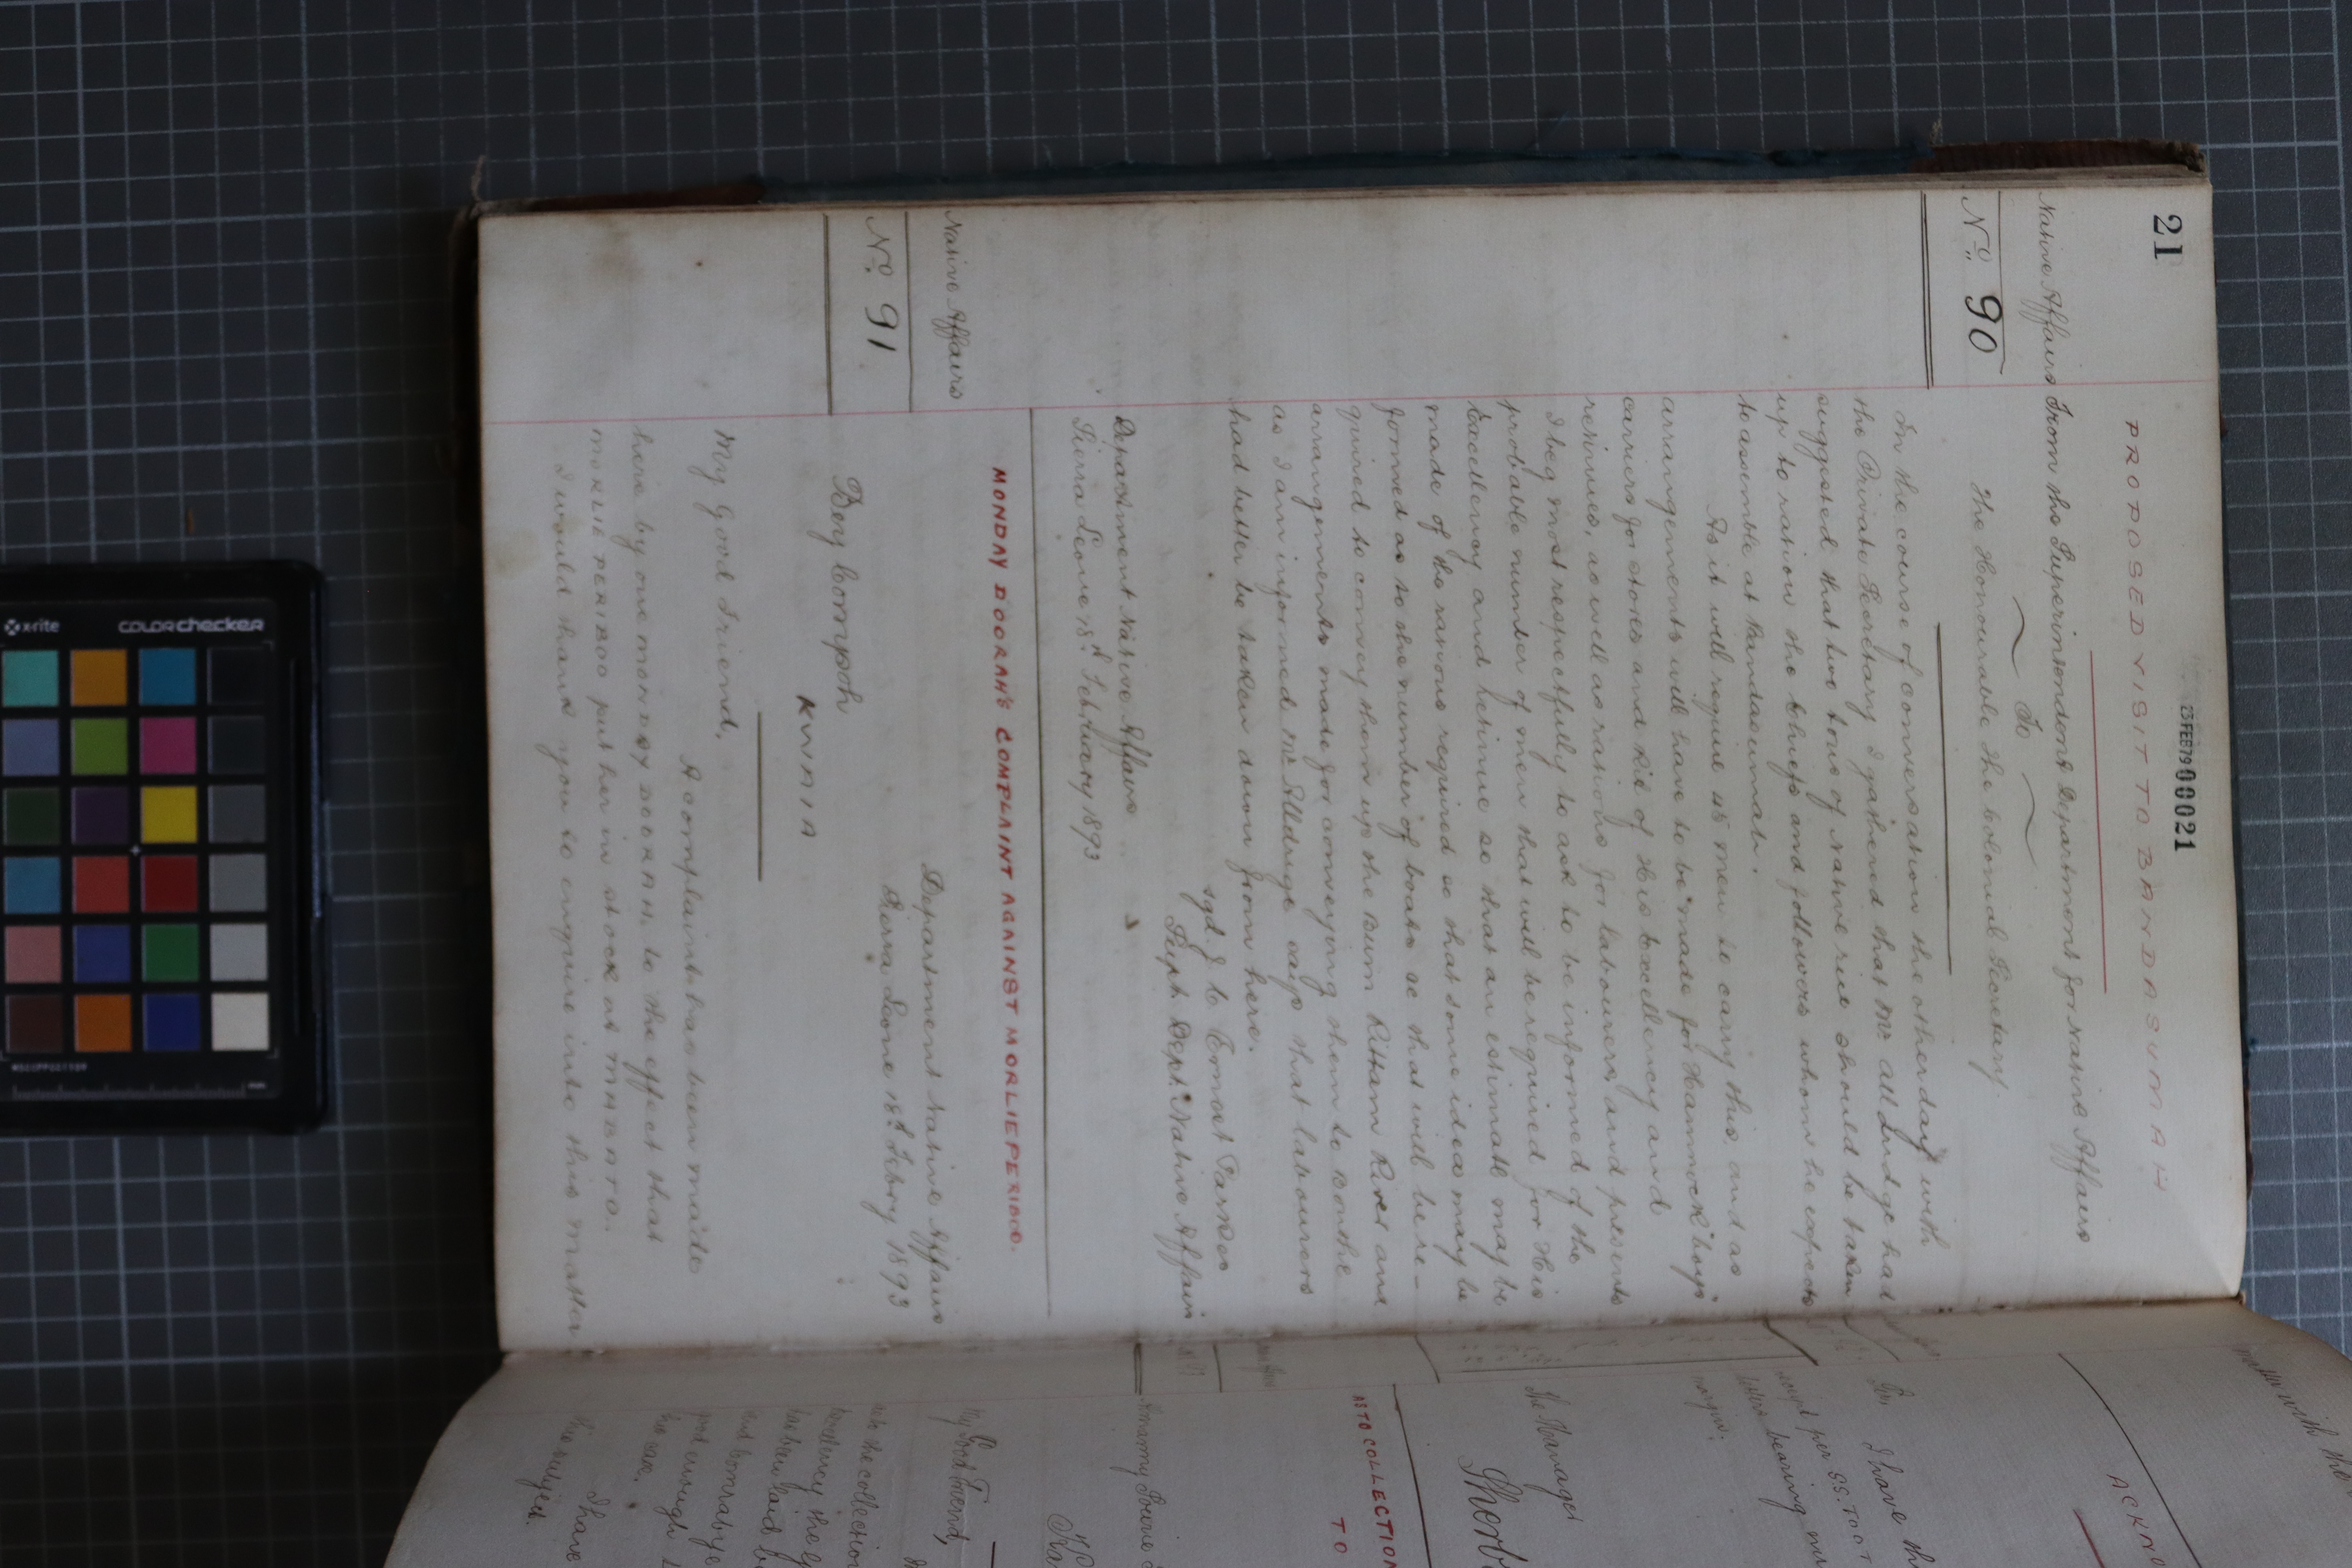 21
23FEB79 00021
PROPOSED VISIT TO BANDASUMAH
Native Affairs
From the Superintendent Department for Native Affairs
To
No. 90
The Honourable The Colonial Secretary.
In the course of conversation the other day with
the Private Secretary I gathered that Mr Alldridge had
suggested that two tons of native rice should be taken
up to ration the Chiefs and followers whom he expects
to assemble at Bandasumah.
As it will require 45 men to carry this and as
arrangements will have to be "made for Hammock "boys"
carriers for stores and Kit of His Excellency and
retinues, as well as rations for labourers, and presents
I beg most respectfully to ask to be informed of the
probable number of men that will be required for His
Excellency and retinue so that an estimate may be
made of the rations required so that some idea may be
formed as to the number of boats &c that will be re-
quired to convey them up the Bum Kittam River and
arrangements made for conveying them to Bonthe
as I am informed Mr Alldridge says that labourers
had better be taken down from here.
sgd. J. C. Ernest Parkes
Supt. Dept. Native Affairs
Department Native Affairs
Sierra Leone 18th February 1893
MONDAY DOORAH'S COMPLAINT AGAINST MORLIE PERIBOO.
Native Affairs
Department Native Affairs
No. 91
Sierra Leone 18th Febry 1893
Bey Compoh
KWAIA
My Good Friend,
A complaint has been made
here by one MONDAY DOORAH, to the effect that
MORLIE PERIBOO put her in stock at
I would thank you to enquire into this matter
ACKN
I have th
per SS.
bearing
margin.
The Manager
Sherb
AS TO COLLECTION
TO
My Good Friend,
the collection
has been laid b
good enough t
I have
the subject.